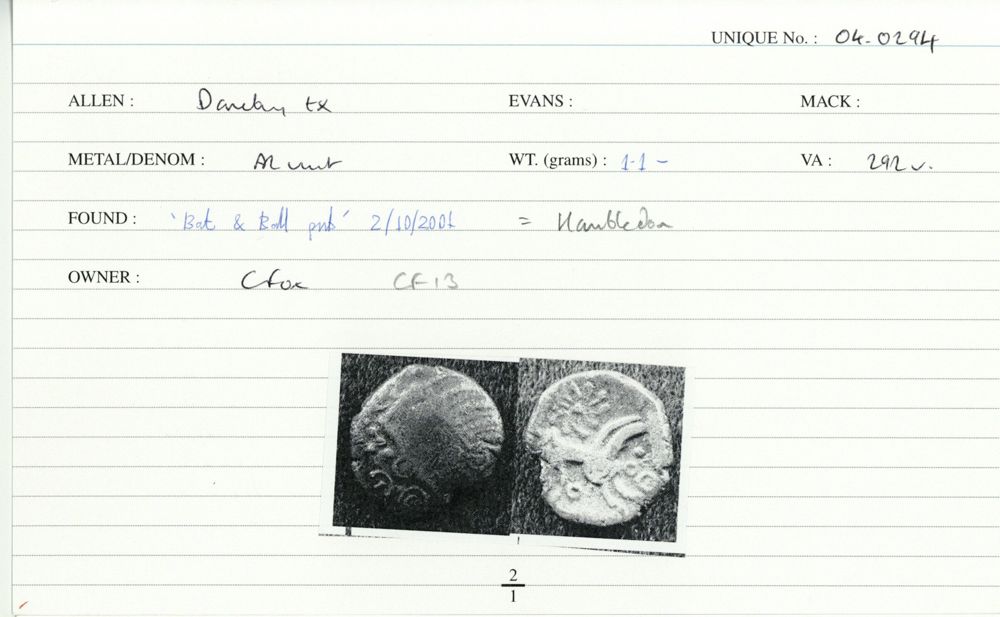 UNIQUE No. : 04-0294
ALLEN : Danebury tx EVANS : MACK :
METAL/DENOM : AR unit WT. (grams) : 1.1 – VA : 292 v.
FOUND : 'Bat & Ball pub' 2/10/2001 = Hambledon
OWNER : C Fox CF 13
2
1